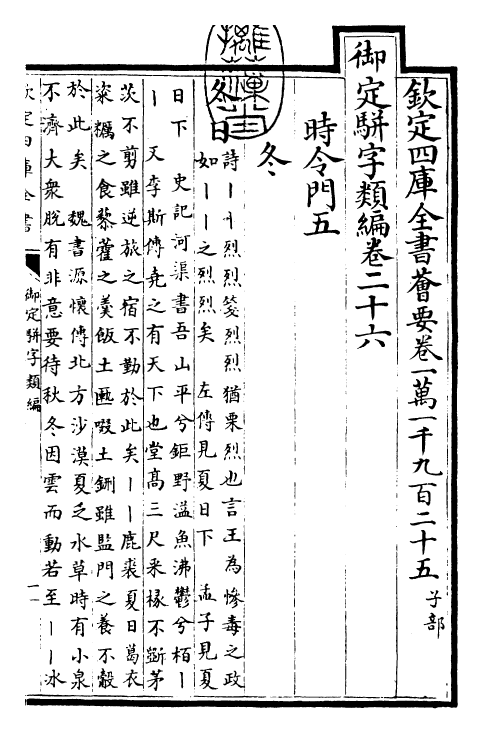 欽定四庫全書薈要卷一萬一千九百二十五 子部
御定駢字類編卷二十六
時令門五
冬
冬日
詩丨丨烈烈箋烈烈猶栗烈也言王為慘毒之政
如丨丨之烈烈矣 左傳見夏日下 孟子見夏
日下 史記河渠書吾山平兮鉅野溢魚沸鬱兮栢丨
丨 又李斯傳堯之有天下也堂高三尺采椽不斲茅
茨不剪雖逆旅之宿不勤於此矣丨丨鹿裘夏日葛衣
粢糲之食藜藿之羮飯土匭啜土鉶雖監門之養不觳
於此矣 魏書源懷傳北方沙漠夏乏水草時有小泉
不濟大衆脫有非意要待秋冬因雲而動若至丨丨冰
欽定四庫全書
御定駢字類編
一